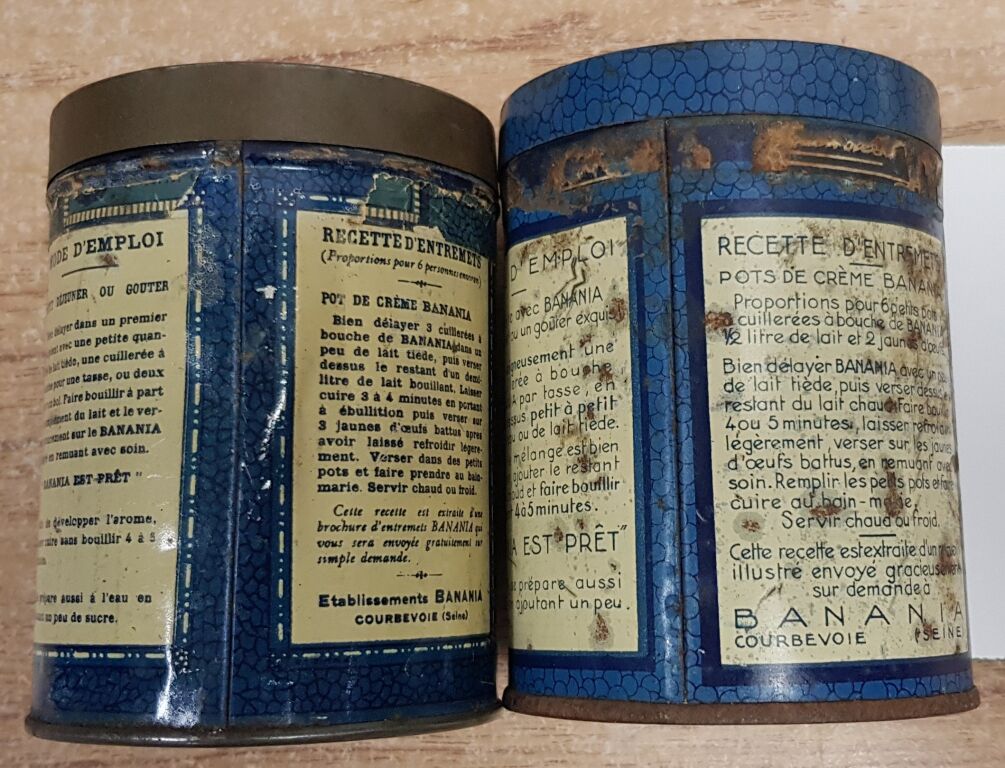 MODE D'EMPLOI
DÉJEUNER OU GOUTER
délayer dans un premier
avec une petite quan-
lait tiède, une cuillerée à
pour une tasse, ou deux
bol. Faire bouillir à part
du lait et le ver-
sur le BANANIA
en remuant avec soin.
BANANIA EST PRÊT"
développer l'arome,
cuire sans bouillir 4 à 5
aussi à l'eau en
un peu de sucre.
RECETTE D'ENTREMETS
(Proportions pour 6 personnes environ)
POT DE CRÈME BANANIA
Bien délayer 3 cuillerées à
bouche de BANANIA dans un
peu de lait tiède, puis verser
dessus le restant d'un demi-
litre de lait bouillant. Laisser
cuire 3 à 4 minutes en portant
à ébullition puis verser sur
3 jaunes d'œufs battus après
avoir laissé refroidir légère-
ment. Verser dans des petits
pots et faire prendre au bain-
marie. Servir chaud ou froid.
Cette recette est extraite d'une
brochure d'entremets BANANIA qui
vous sera envoyée gratuitement sur
simple demande.
Etablissements BANANIA
COURBEVOIE (Seine)
D'EMPLOI
avec BANANIA
ou un goûter exquis
soigneusement une
à bouche
par tasse, en
petit à petit
ou de lait tiède.
mélange est bien
ajouter le restant
et faire bouillir
4 à 5 minutes.
EST PRÊT"
prépare aussi
ajoutant un peu
RECETTE D'ENTREMETS
POTS DE CRÈME BANANIA
Proportions pour 6 petits pots
cuillerées à bouche de BANANIA
1/2 litre de lait et 2 jaunes d'œufs
Bien délayer BANANIA avec un peu
de lait tiède, puis verser dessus
restant du lait chaud. Faire bouillir
4 ou 5 minutes, laisser refroidir
légèrement, verser sur les jaunes
d'œufs battus, en remuant avec
soin. Remplir les petits pots et faire
cuire au bain-marie.
Servir chaud ou froid.
Cette recette est extraite d'un
illustré envoyé gracieusement
sur demande à
BANANIA
COURBEVOIE (SEINE)